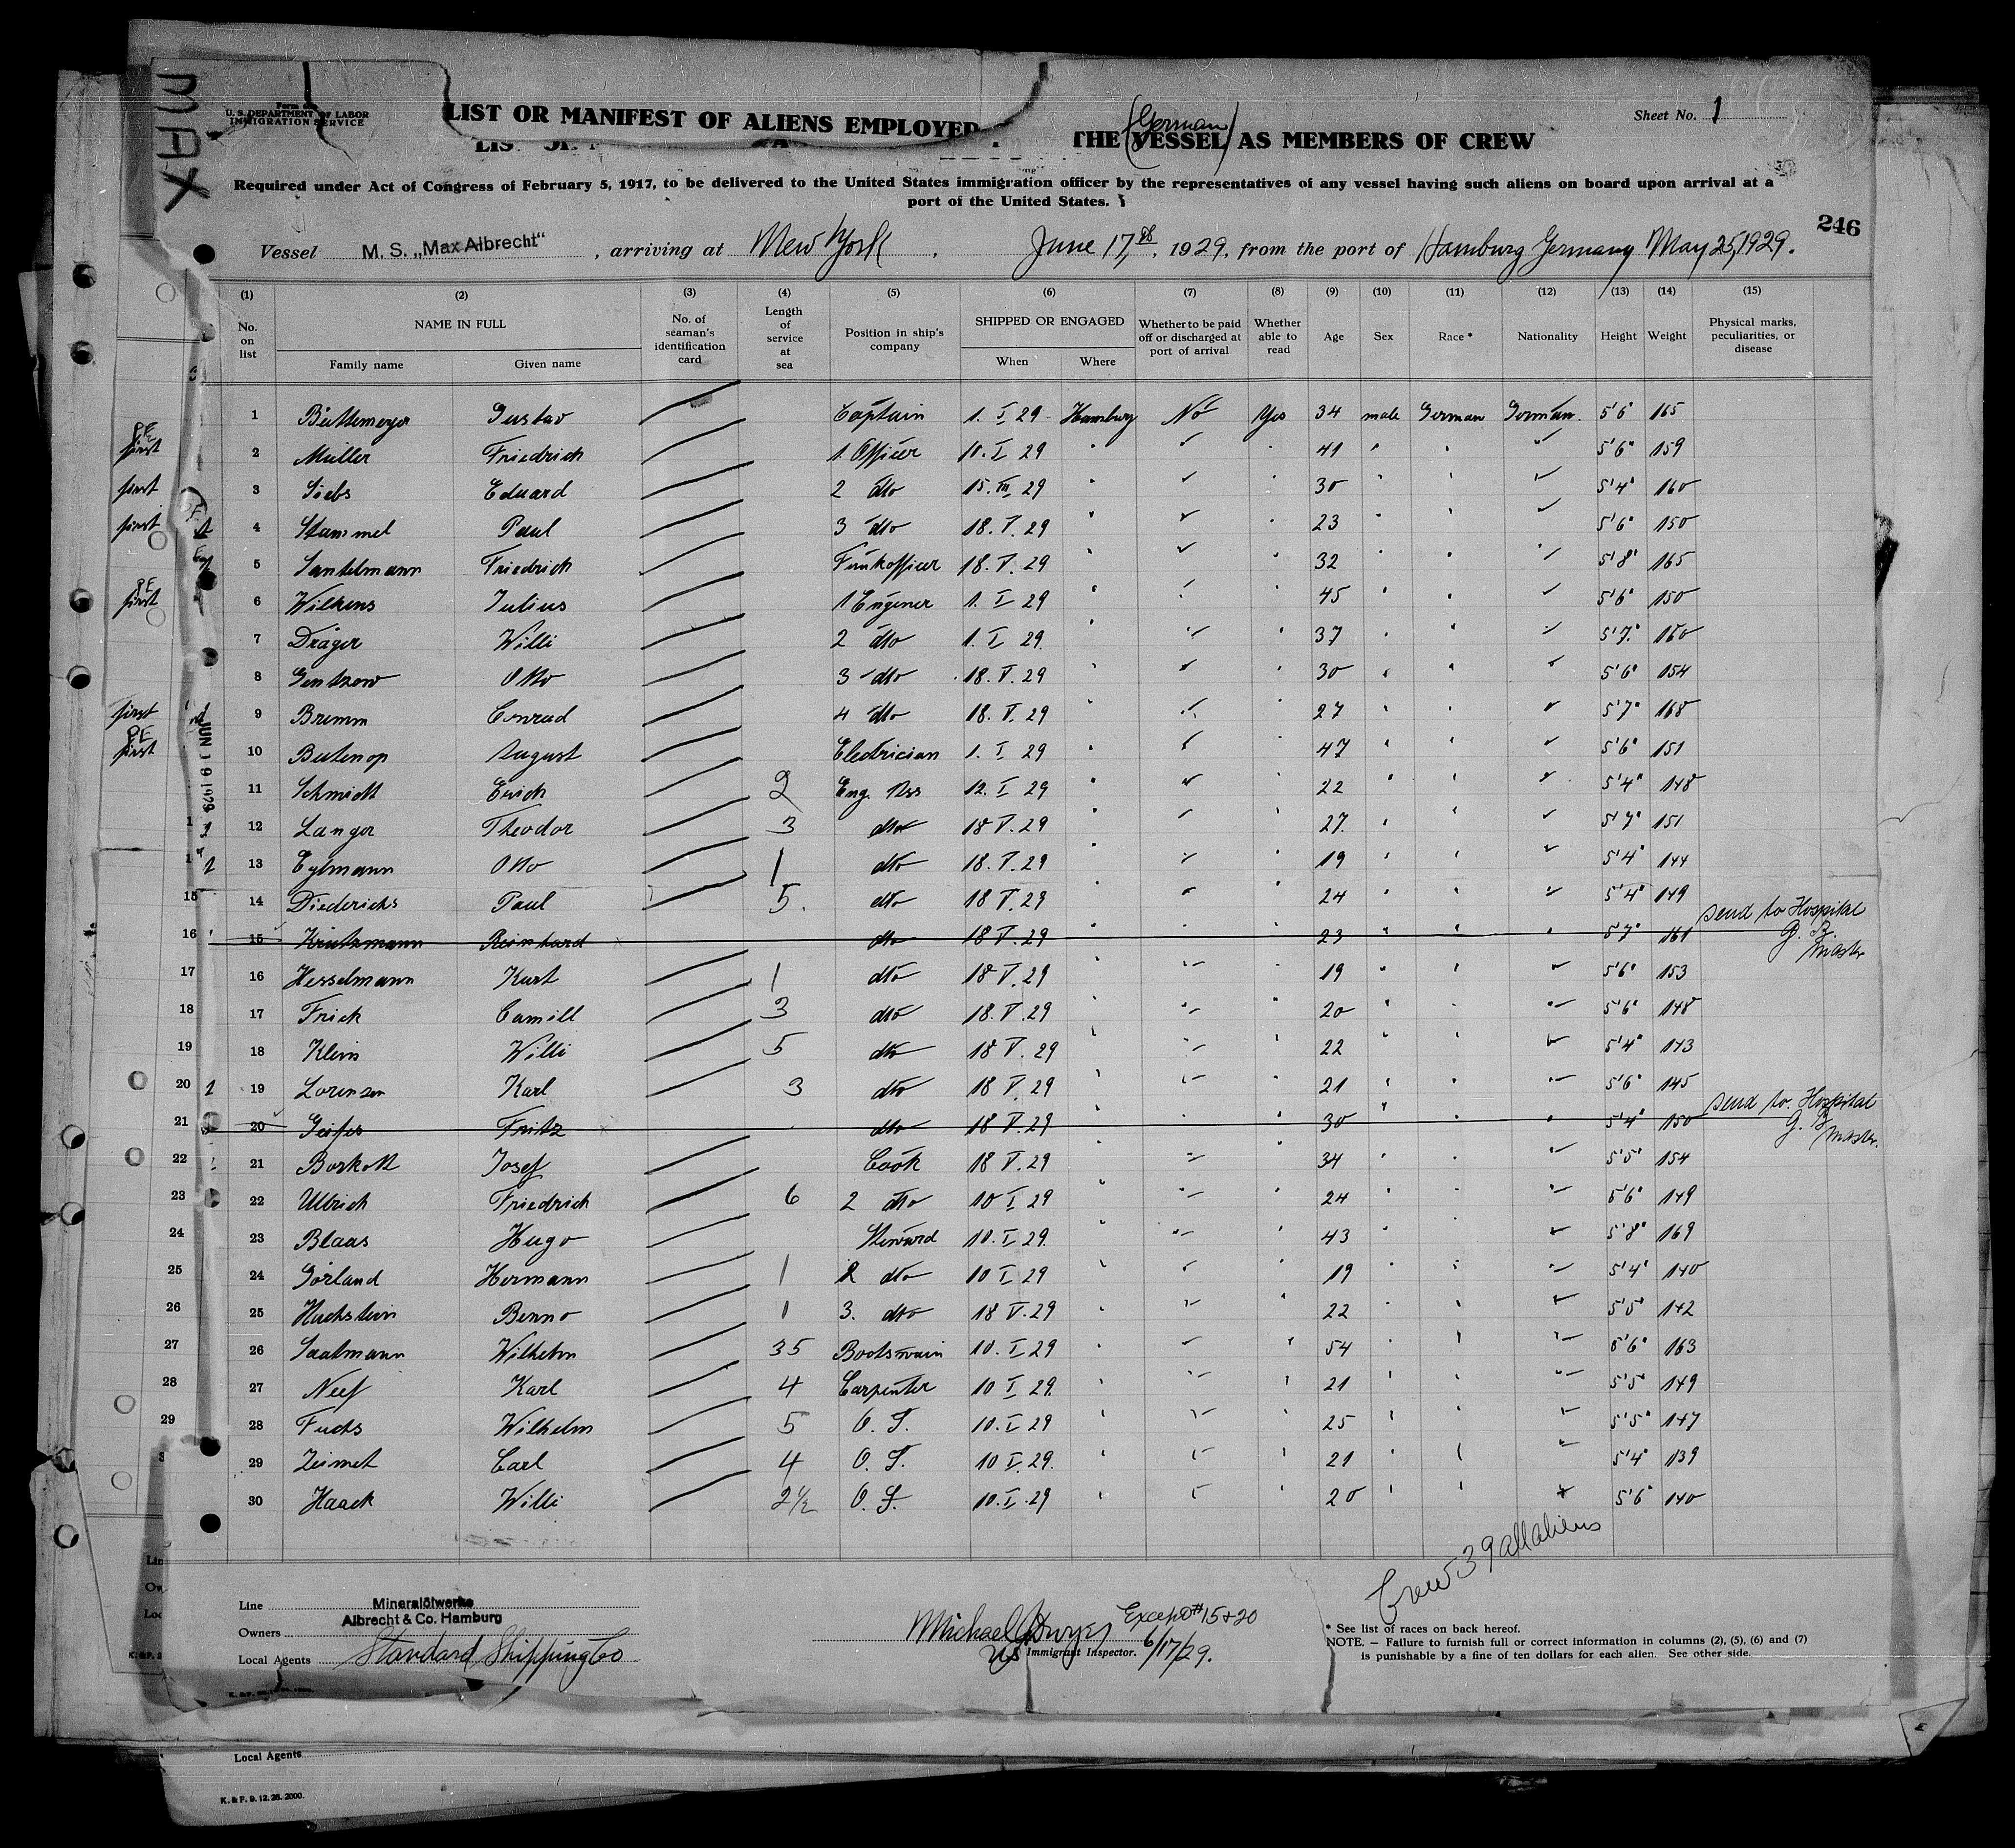 MAX
Form 689
U. S. DEPARTMENT OF LABOR
IMMIGRATION SERVICE
LIST OR MANIFEST OF ALIENS EMPLOYED THE (VESSEL) AS MEMBERS OF CREW
(German)
Sheet No. 1
Required under Act of Congress of February 5, 1917, to be delivered to the United States immigration officer by the representatives of any vessel having such aliens on board upon arrival at a
port of the United States.
246
Vessel M. S. „Max Albrecht“, arriving at New York, June 17,th, 1929, from the port of Hamburg Germany May 25, 1929.
(1) (2) (3) (4) (5) (6) (7) (8) (9) (10) (11) (12) (13) (14) (15)
No. on list NAME IN FULL Family name Given name No. of seaman's identification card Length of service at sea Position in ship's company SHIPPED OR ENGAGED When Where Whether to be paid off or discharged at port of arrival Whether able to read Age Sex Race * Nationality Height Weight Physical marks, peculiarities, or disease
1 Büttemeyer Gustav Captain 1. I 29 Hamburg No Yes 34 male German German. 5'6 165
PE first 2 Müller Friedrich 1. Officer 10. I 29 " 41 5'6" 159
first 3 Siebs Eduard 2 dto 15. III 29 " 30 5'4" 160
first 4 Stammel Paul 3 dto 18. V. 29 " 23 5'6" 150
5 Santelmann Friedrich Funkofficer 18. V. 29 " 32 5'8" 165
PE first 6 Wilkens Julius 1 Engener 1. I 29 " 45 5'6" 150
7 Dräger Willi 2 dto 1. I 29. " 37 5'7" 160
8 Gentzow Otto 3 dto 18. V. 29 " 30 5'6" 154
first 9 Bremm Conrad 4 dto 18. V. 29 " 27 5'7" 168
PE first 10 Butenop August Electrician 1. I 29 " 47 5'6" 151
JUN 19 1929
11 Schmidt Erich 2 Eng. Ass 12. I 29 " 22 5'4" 148
12 Langer Theodor 3 dto 18 V. 29 " 27. 5'7" 151
13 Eylmann Otto 1 dto 18. V. 29 " 19 5'4" 144
15 14 Diederichs Paul 5. dto 18 V. 29 " 24 5'4" 149
send to Hospital
G. B.
Master
16 15 Krützmann Reinhard dto 18 V. 29 " 23 5'7" 161
17 16 Hesselmann Kurt 1 dto 18 V. 29 " 19 5'6" 153
18 17 Frick Camill 3 dto 18. V. 29 " 20 5'6" 148
19 18 Klein Willi 5 dto 18 V. 29 " 22 5'4" 143
20 19 Lorenzen Karl 3 dto 18 V. 29 " 21 5'6" 145
send to Hospital
G. B.
Master.
21 20 Fritz dto 18 V. 29 " 30 5'4" 150
22 21 Borkott Josef Cook 18 V. 29 34 5'5" 154
23 22 Ullrich Friedrich 6 2 dto 10 I 29 " 24 5'6" 149
24 23 Blaas Hugo Steward 10. I 29. " 43 5'8" 169
25 24 Görland Hermann 1 2 dto 10 I 29 " 19 5'4" 140
26 25 Huchstein Benno 1 3. dto 18 V. 29 " 22 5'5" 142
27 26 Saatmann Wilhelm 35 Bootswain 10. I 29 " 54 5'6" 163
28 27 Neef Karl 4 Carpenter 10 I 29. " 21 5'5" 149
29 28 Fuchs Wilhelm 5 O. S. 10. I 29 " 25 5'5" 147
29 Zeimet Carl 4 O. S. 10 I. 29. " 21 5'4" 139
30 Haack Willi 2½ O. S. 10. I. 29 " 20 5'6" 140
Crew 39 all aliens
Line Mineralölwerke
Albrecht & Co. Hamburg
Owners
Local Agents Standard Shipping Co
Michael J Dwyer Except # 15 + 20
US Immigrant Inspector. 6/17/29.
* See list of races on back hereof.
NOTE. — Failure to furnish full or correct information in columns (2), (5), (6) and (7)
is punishable by a fine of ten dollars for each alien. See other side.
Local Agents
K. & F. 9. 12. 28. 2000.